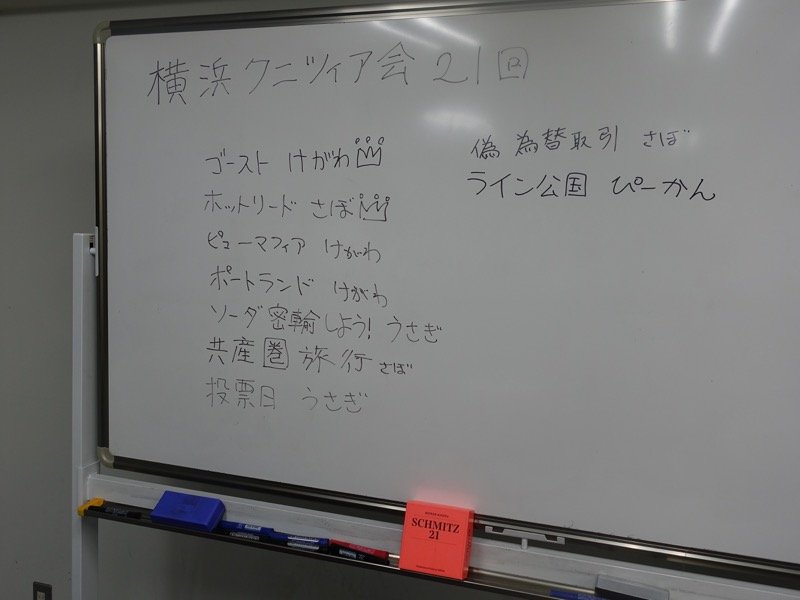 横浜クニツィア会 21回
ゴースト けがわ
ホットリード さぼ
ピューマフィア けがわ
ポートランド けがわ
ソーダ密輸しよう! うさぎ
共産圏 旅行 さぼ
投票日 うさぎ
偽 為替取引 さぼ
ライン公国 ぴーかん
SCHMITZ
21